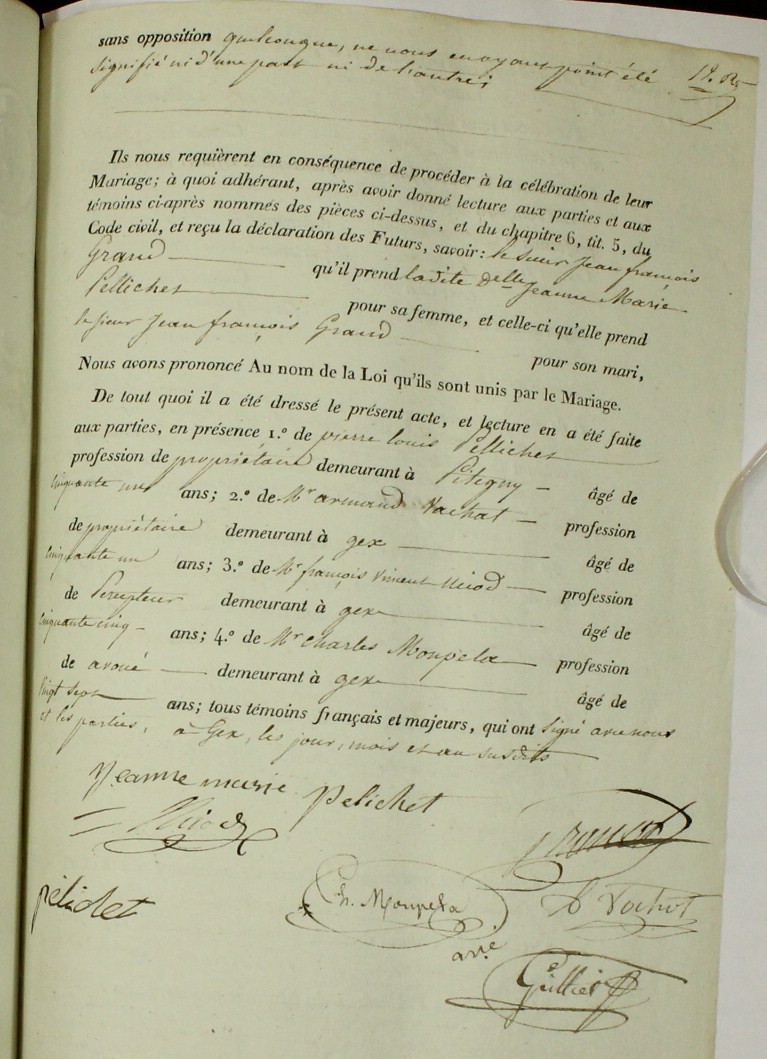 sans opposition quelconque, ne nous en ayant point été
signifié ni d'une part ni de l'autre;
Ils nous requièrent en conséquence de procéder à la célébration de leur
Mariage; à quoi adhérant, après avoir donné lecture aux parties et aux
témoins ci-après nommés des pièces ci-dessus, et du chapitre 6, tit. 5, du
Code civil, et reçu la déclaration des Futurs, savoir: le sieur Jean françois
Grand qu'il prend ladite delle Jeanne Marie
Pellichet pour sa femme, et celle-ci qu'elle prend
le sieur Jean françois Grand pour son mari,
Nous avons prononcé Au nom de la Loi qu'ils sont unis par le Mariage.
De tout quoi il a été dressé le présent acte, et lecture en a été faite
aux parties, en présence 1.° de pierre louis Pellichet
profession de propriétaire demeurant à Pitegny âgé de
cinquante un ans; 2.° de Mr armand Vachat profession
de propriétaire demeurant à gex âgé de
cinquante un ans; 3.° de Mr françois Vincent Nicod profession
de Percepteur demeurant à gex âgé de
cinquante cinq ans; 4.° de Mr Charles Monpela profession
de avoué demeurant à gex âgé de
vingt sept ans; tous témoins français et majeurs, qui ont signé avec nous
et les parties, à Gex, les jour, mois et an susdits
Jeanne marie Pelichet
Nicod
pelichet
Ch. Monpela
avé
Vachat